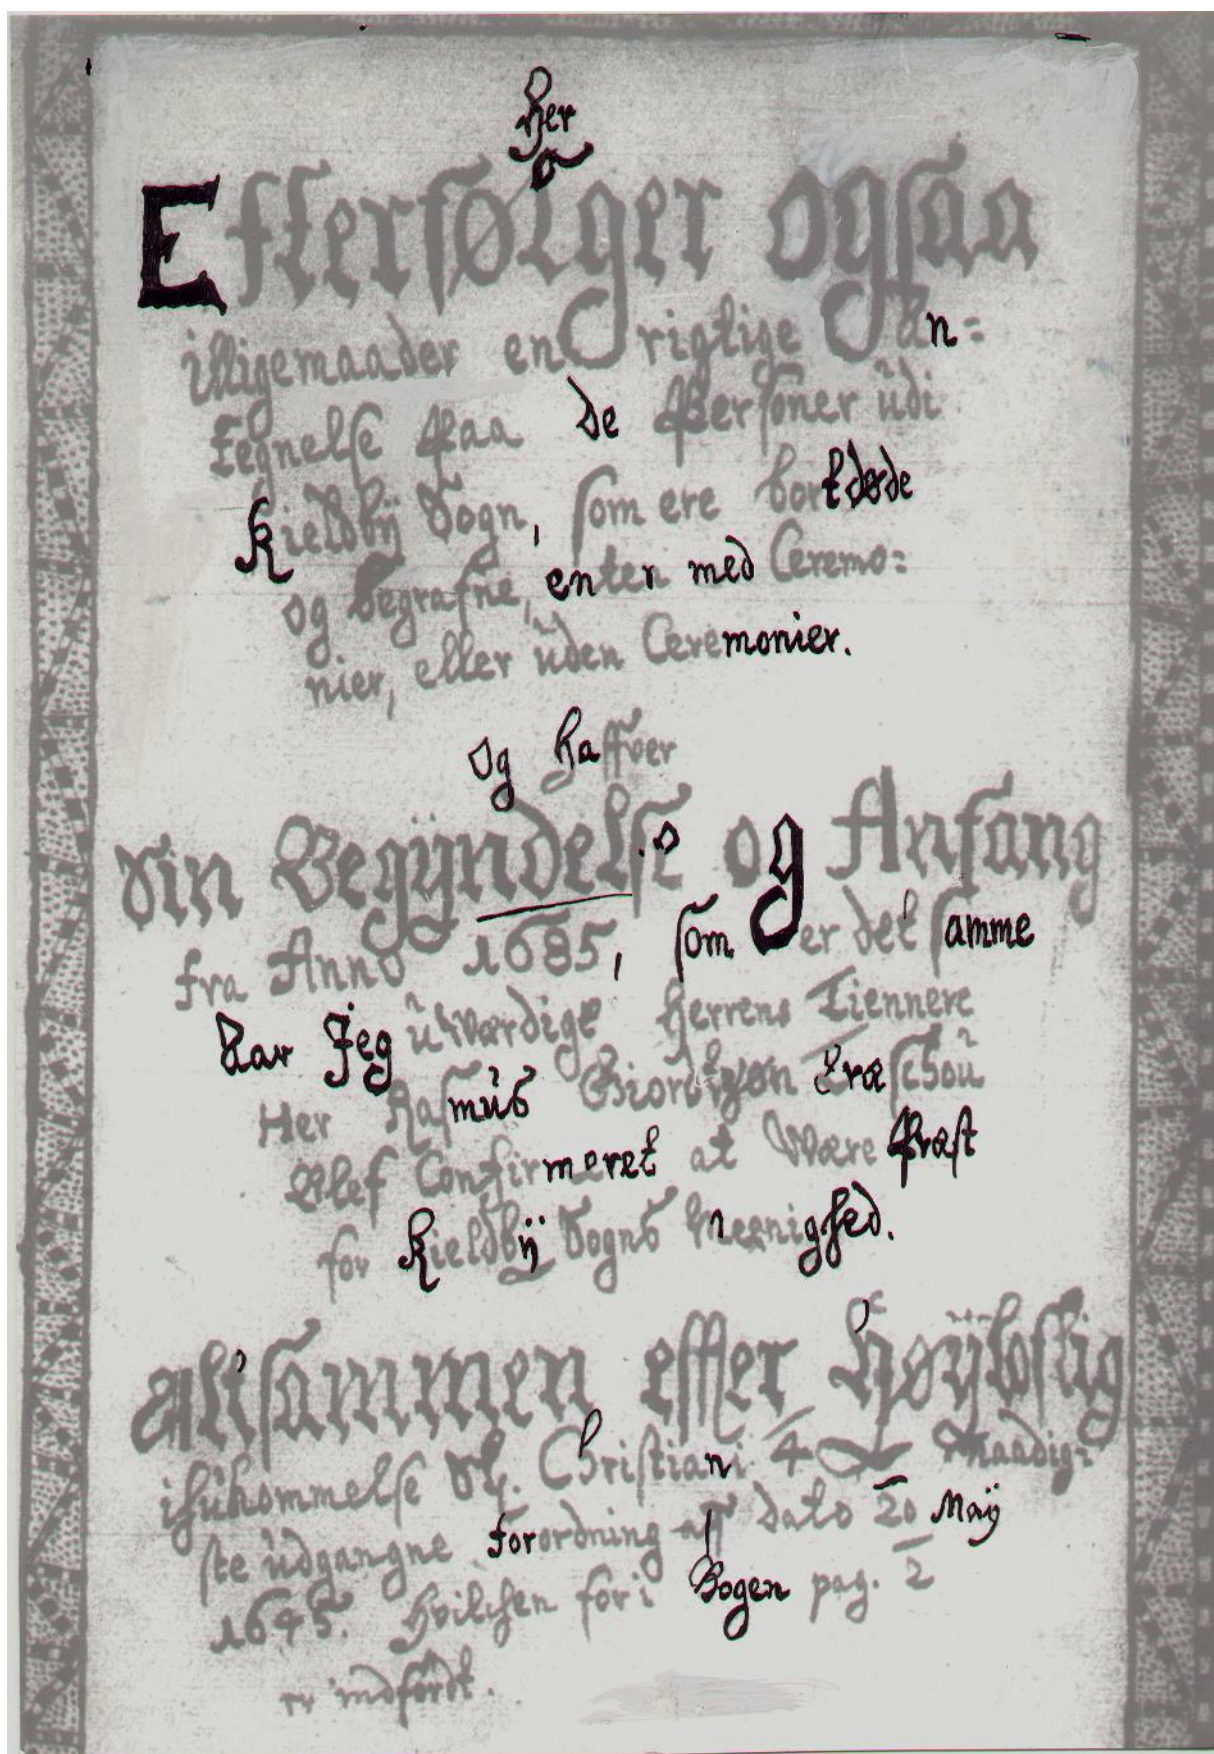 Her
Efterfølger ogsaa
illigemaader en rigtige An=
tegnelse paa de Personer udi
Kieldbÿ Sogn, som ere bortdøde
og begrafne, enten med Ceremo=
nier, eller uden Ceremonier.
Og haffver
Sin Begÿndelse og Anfang
fra Anno 1685, som er det samme
Aar Jeg uværdige Herrens Tiennere
Her Rasmus
Blef Confirmeret at være Præst
for Kieldbÿ Sogns Meenighed.
altsammen effter Høÿloflig
ihukommelse Sl. Christiani 4 Naadig=
ste udgangne forordning aff dato 20 Maÿ
1645. hvilchen for i Bogen pag. 2
er indført.